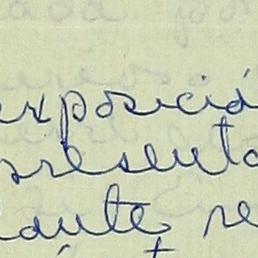 exposició
presenta
iante re